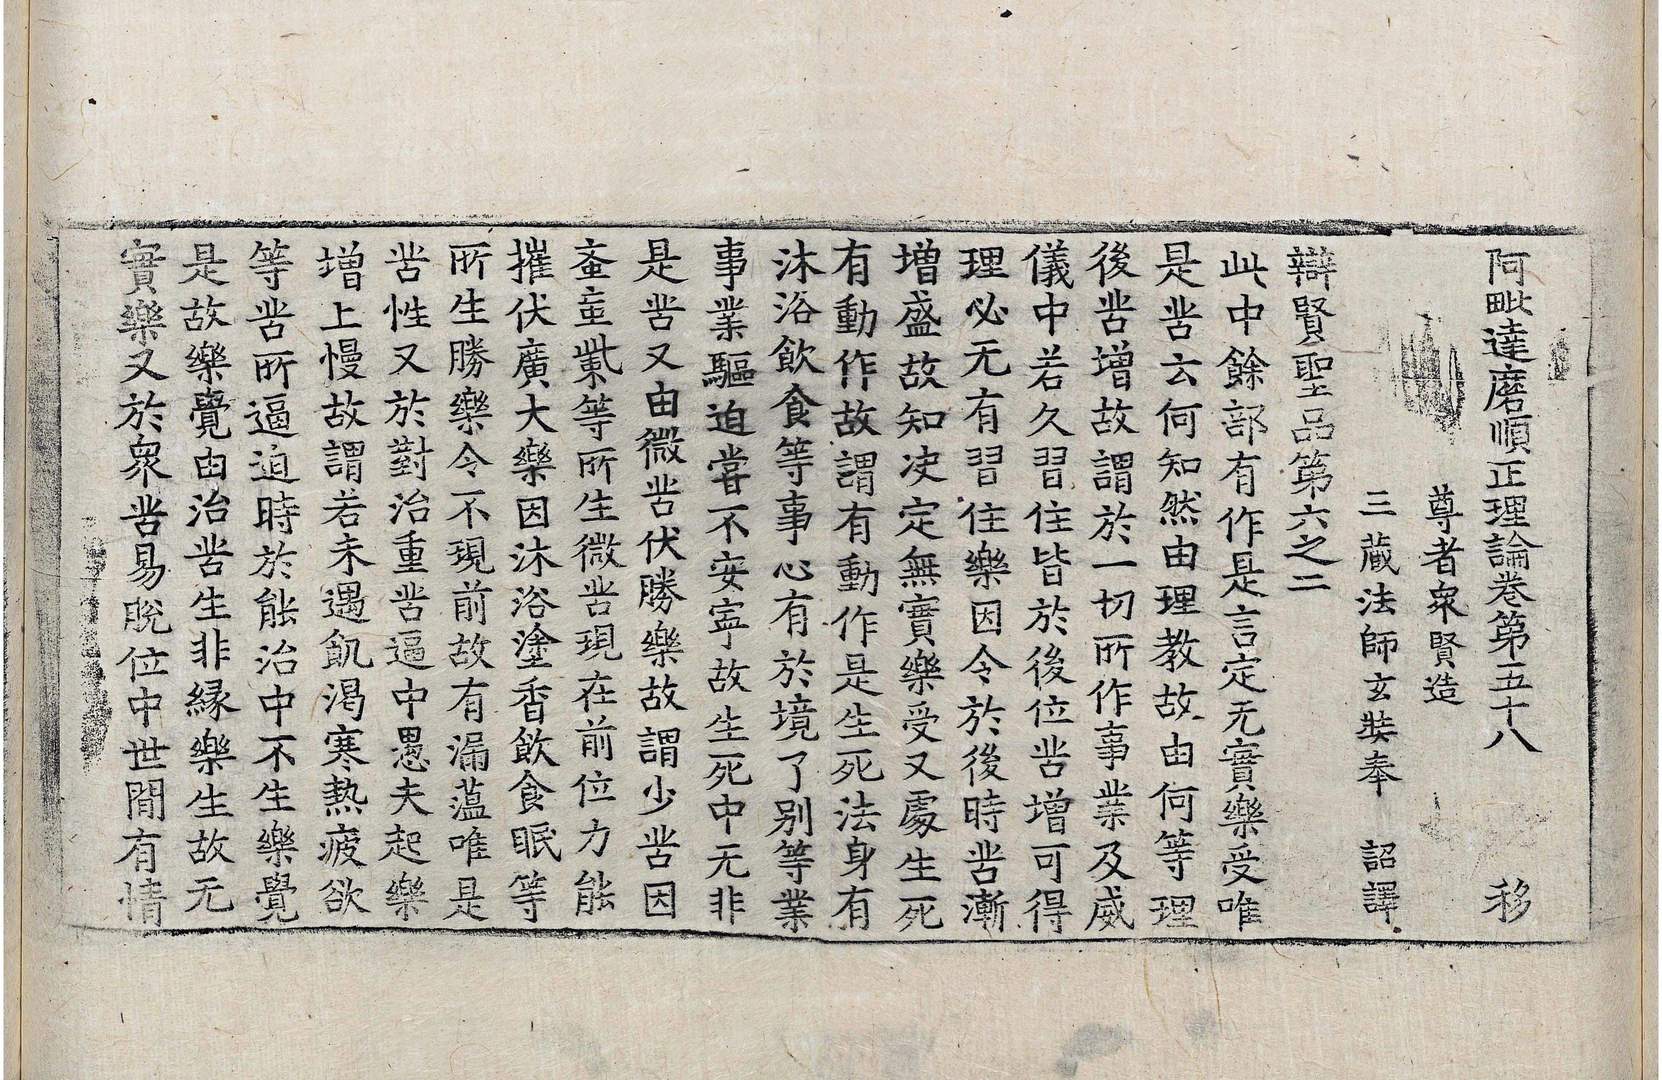 阿毗達磨順正理論卷第五十八　移
尊者衆賢造
三藏法師玄奘奉　詔譯
辯賢聖品第六之二
此中餘部有作是言定无實樂受唯
是苦云何知然由理教故由何等理
後苦增故謂於一切所作事業及威
儀中若久習住皆於後位苦增可得
理必无有習住樂因令於後時苦漸
增盛故知决定無實樂受又處生死
有動作故謂有動作是生死法身有
沐浴飲食等事心有於境了别等業
事業驅迫嘗不安寧故生死中无非
是苦又由微苦伏勝樂故謂少苦因
蚉䖟䗍等所生微苦現在前位力能
摧伏廣大樂因沐浴塗香飲食眠等
所生勝樂令不現前故有漏蘊唯是
苦性又於對治重苦逼中愚夫起樂
增上慢故謂若未遇飢渴寒熱疲欲
等苦所逼迫時於能治中不生樂覺
是故樂覺由治苦生非緣樂生故无
實樂又於衆苦易脫位中世間有情